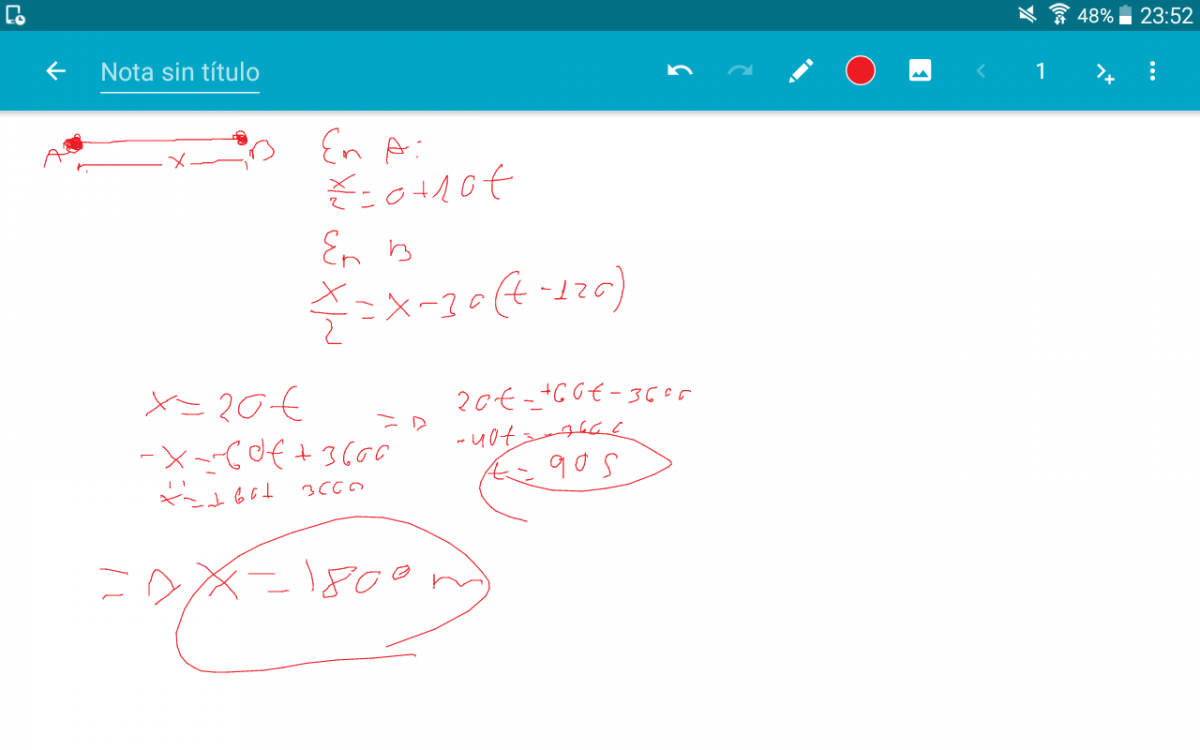 48% 23:52
Nota sin título
1
A x B
En A:
x/2=0+10t
En B
x/2=x-30(t-120)
x=20t
-x=-60t+3600
x=+60t 3600
=D 20t=+60t-3600
-40t=-3600
t=90s
=D x=1800 m